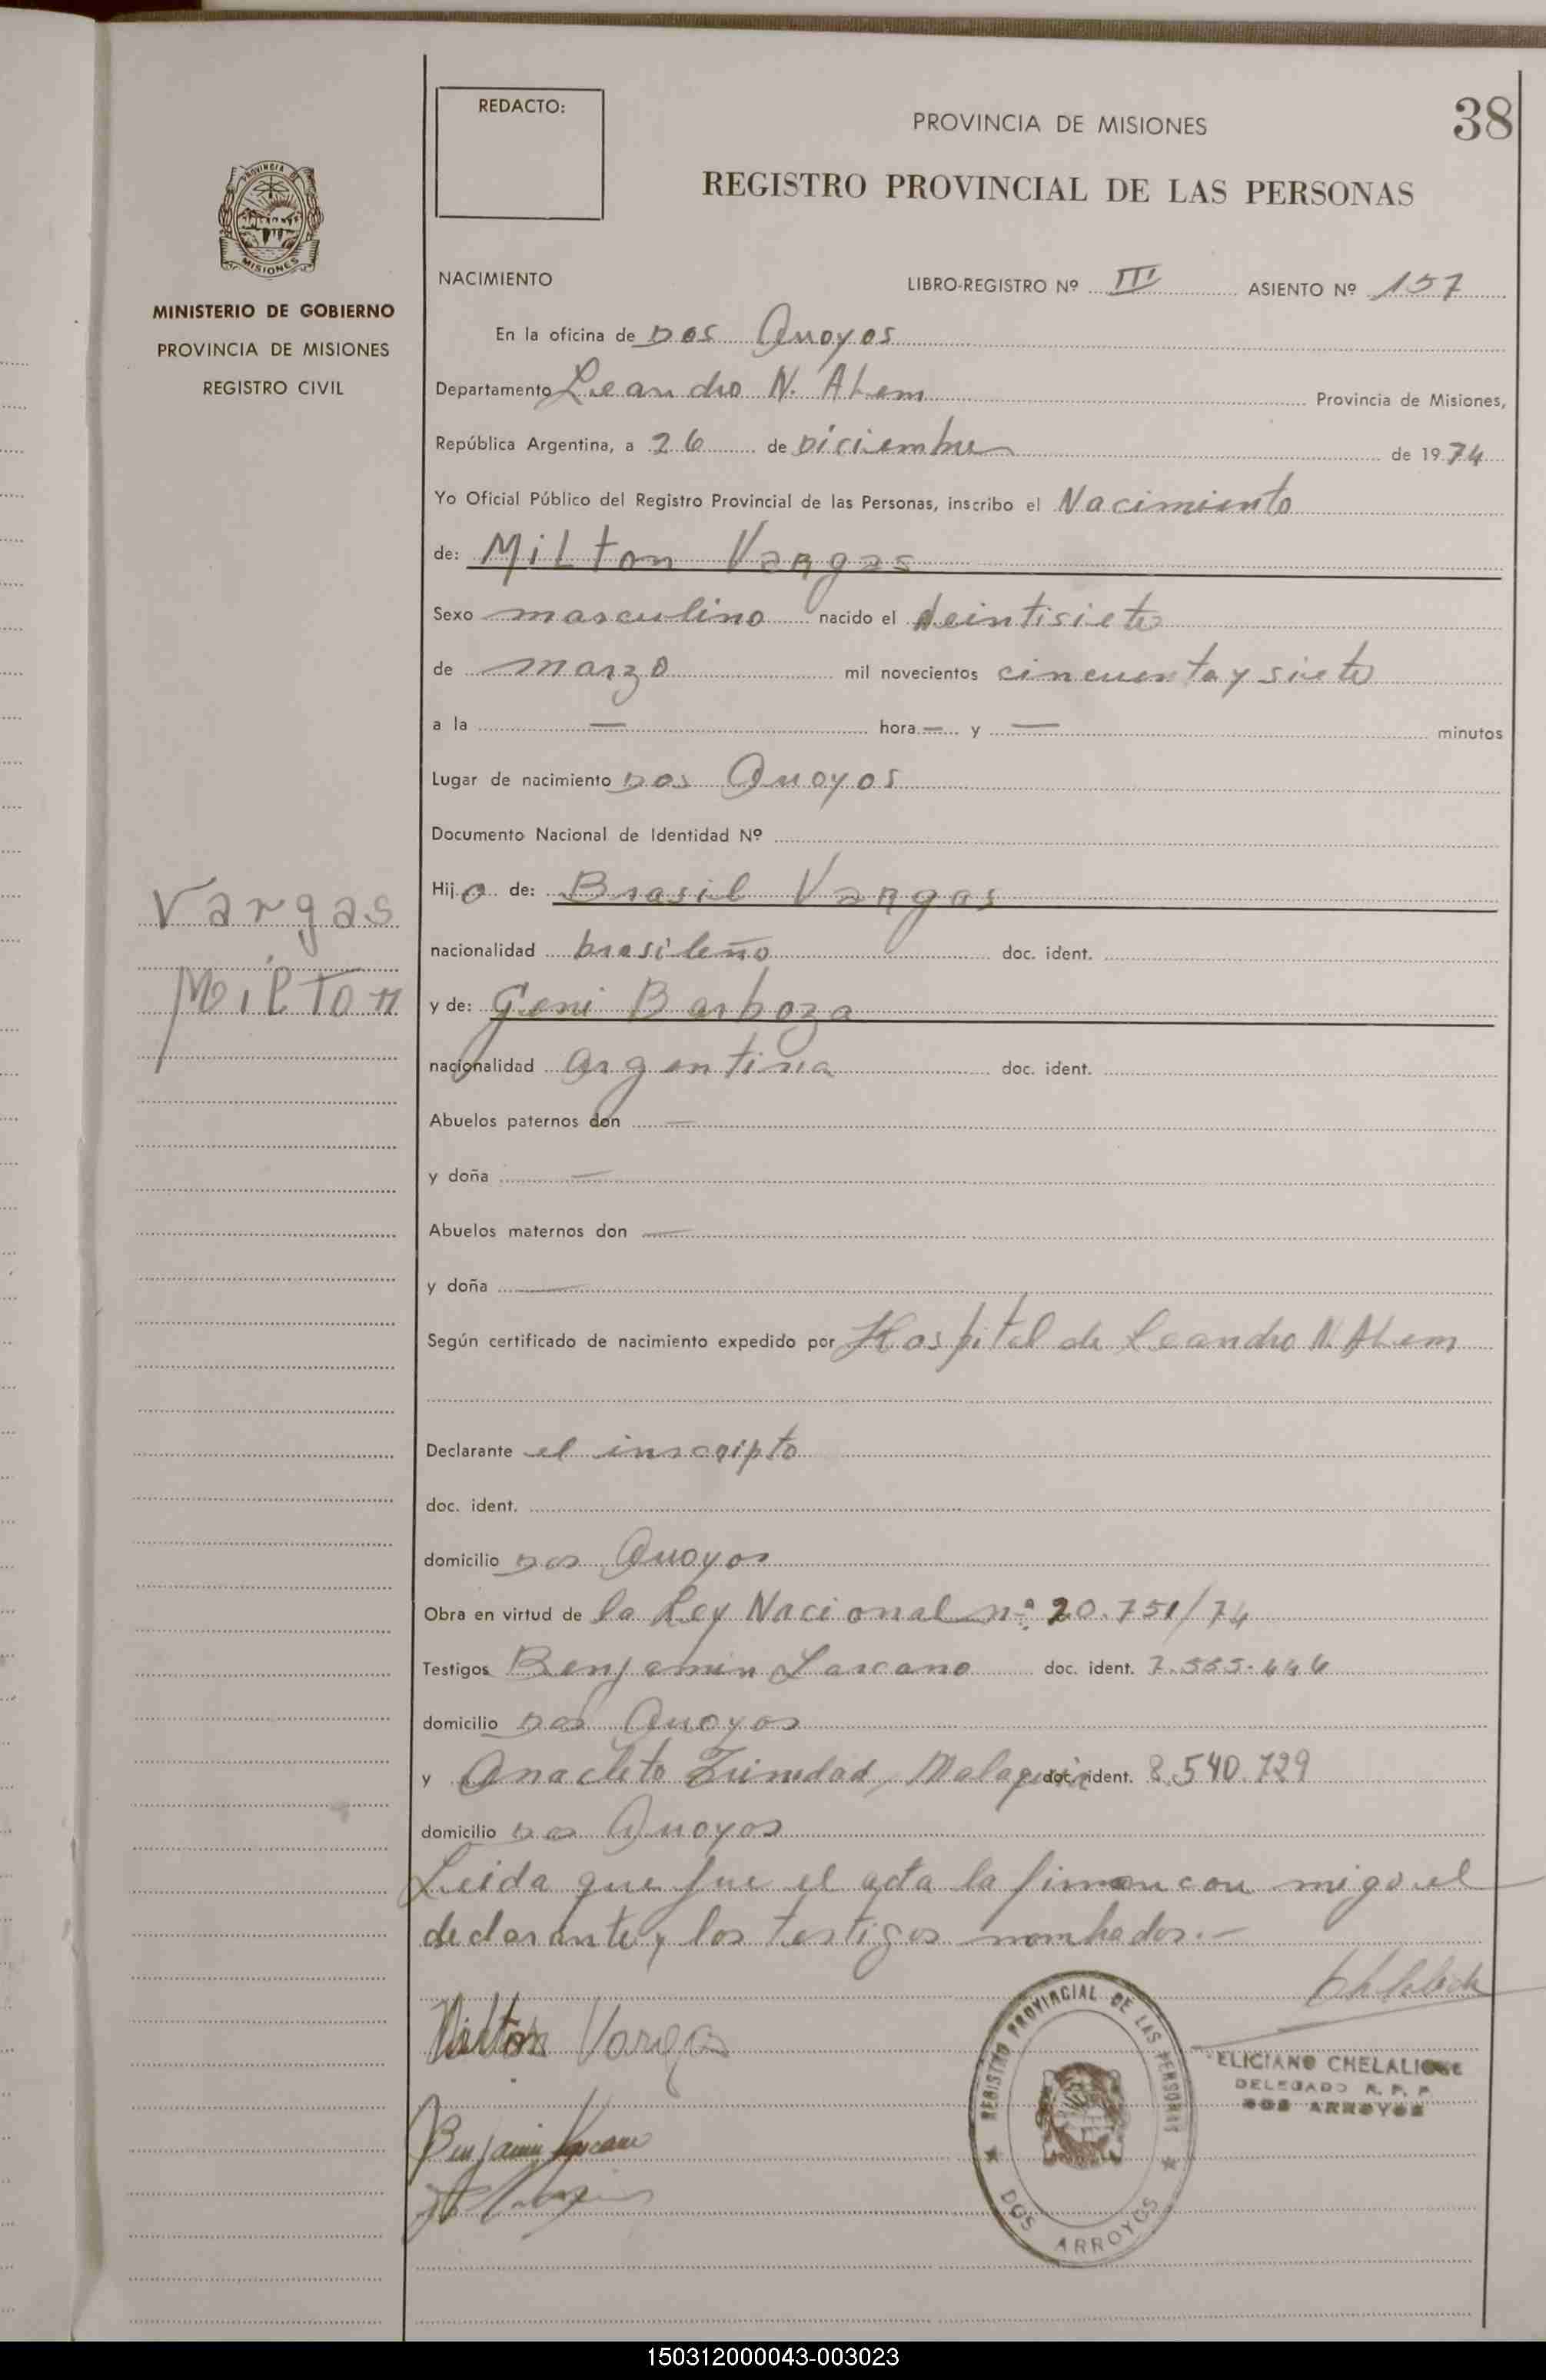 REDACTO:
PROVINCIA DE MISIONES
38
REGISTRO PROVINCIAL DE LAS PERSONAS
PROVINCIA
MISIONES
MINISTERIO DE GOBIERNO
PROVINCIA DE MISIONES
REGISTRO CIVIL
Vargas
Milton
NACIMIENTO LIBRO-REGISTRO Nº III ASIENTO Nº 157
En la oficina de Dos Arroyos
Departamento Leandro N. Alem Provincia de Misiones,
República Argentina, a 26 de Diciembre de 1974
Yo Oficial Público del Registro Provincial de las Personas, inscribo el Nacimiento
de: Milton Vargas
Sexo masculino nacido el veintisiete
de marzo mil novecientos cincuenta y siete
a la — hora — y — minutos
Lugar de nacimiento Dos Arroyos
Documento Nacional de Identidad Nº
Hijo de: Brasil Vargas
nacionalidad brasileño doc. ident.
y de: Geni Barboza
nacionalidad argentina doc. ident.
Abuelos paternos don —
y doña —
Abuelos maternos don —
y doña —
Según certificado de nacimiento expedido por Hospital de Leandro N. Alem
Declarante el inscripto
doc. ident.
domicilio Dos Arroyos
Obra en virtud de la Ley Nacional nº 20.751/74
Testigos Benjamin Lascano doc. ident. 7.555.446
domicilio Dos Arroyos
y Anacleto Trinidad, doc. ident. 8.540.729
domicilio Dos Arroyos
Leida que fue el acta la firman con migo el
declarante y los testigos nombrados.—
Milton Vargas
Benjamin Lascano
REGISTRO PROVINCIAL DE LAS PERSONAS
DOS ARROYOS
ELICIANO CHELALICHE
DELEGADO R. P. P.
DOS ARROYOS
150312000043-003023